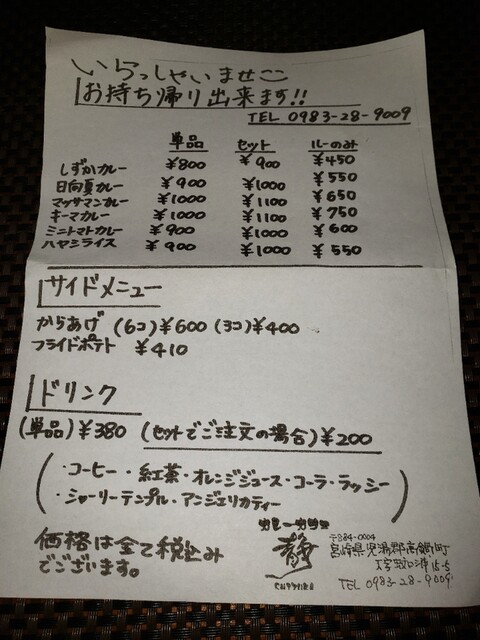 いらっしゃいませ
お持ち帰り出来ます!!
TEL 0983-28-9009
単品 セット ルーのみ
しずかカレー ¥800 ¥900 ¥450
日向夏カレー ¥900 ¥1000 ¥550
マッサマンカレー ¥1000 ¥1100 ¥650
キーマカレー ¥1000 ¥1100 ¥750
ミニトマトカレー ¥900 ¥1000 ¥600
ハヤシライス ¥900 ¥1000 ¥550
サイドメニュー
からあげ (6コ)¥600 (3コ)¥400
フライドポテト ¥410
ドリンク
(単品)¥380 (セットでご注文の場合)¥200
・コーヒー・紅茶・オレンジジュース・コーラ・ラッシー
・シャーリーテンプル・アンジェリカティー
価格は全て税込み
でございます。
静
〒884-0004
宮崎県児湯郡高鍋町
TEL 0983-28-9009